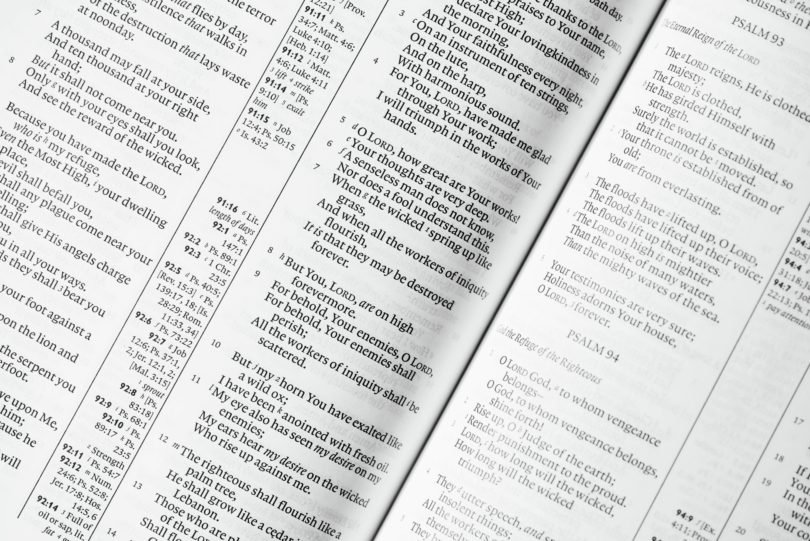 the terror
that flies by day,
pestilence that walks in
of the destruction that lays waste
at noonday.
7 A thousand may fall at your side,
And ten thousand at your right
hand;
But it shall not come near you.
8 Only with your eyes shall you look,
And see the reward of the wicked.
Because you have made the LORD,
who is my refuge,
Even the Most High, your dwelling
place,
evil shall befall you,
shall any plague come near your
dwelling;
shall give His angels charge
you,
you in all your ways.
they shall bear you
your foot against a
upon the lion and
the serpent you
underfoot.
love upon Me,
him;
because he
will
12:21]
91:11 k Ps.
34:7; Matt. 4:6;
Luke 4:10;
[Heb. 1:14]
91:12 l Matt.
4:6; Luke 4:11
3 lift 4 strike
91:14 m [Ps.
9:10] 5 exalt
him
91:15 n Job
12:4; Ps. 50:15
o Is. 43:2
91:16 6 Lit.
length of days
92:1 a Ps.
147:1
92:2 b Ps. 89:1
92:3 c 1 Chr.
23:5
92:5 d Ps. 40:5;
[Rev. 15:3] e Ps.
139:17, 18; [Is.
28:29; Rom.
11:33, 34]
92:6 f Ps. 73:22
92:7 g Job
12:6; Ps. 37:1,
2; Jer. 12:1, 2;
[Mal. 3:15]
1 sprout
92:8 h [Ps.
83:18]
92:9 i Ps. 68:1
92:10 j Ps.
89:17 k Ps.
23:5
92:11 l Ps. 54:7
92:12 m Num.
24:6; Ps. 52:8;
Jer. 17:8; Hos.
14:5, 6
92:14 3 Full of
oil or sap, lit.
fat
thanks to the LORD,
praises to Your name,
Most High;
3 declare Your lovingkindness in
the morning,
And Your faithfulness every night,
On an instrument of ten strings,
On the lute,
And on the harp,
With harmonious sound.
4 For You, LORD, have made me glad
through Your work;
I will triumph in the works of Your
hands.
5 d O LORD, how great are Your works!
e Your thoughts are very deep.
6 f A senseless man does not know,
Nor does a fool understand this.
7 When g the wicked 1 spring up like
grass,
And when all the workers of iniquity
flourish,
It is that they may be destroyed
forever.
8 h But You, LORD, are on high
forevermore.
9 For behold, Your enemies, O LORD,
For behold, Your enemies shall
perish;
All the workers of iniquity shall i be
scattered.
10 But j my 2 horn You have exalted like
a wild ox;
I have been k anointed with fresh oil.
11 l My eye also has seen my desire on my
enemies;
My ears hear my desire on the wicked
Who rise up against me.
12 m The righteous shall flourish like a
palm tree,
He shall grow like a cedar in
Lebanon.
13 Those who are
of the LORD
14 Shall
PSALM 93
The Eternal Reign of the LORD
The a LORD reigns, He is clothed
majesty;
The LORD is clothed,
He has girded Himself with
strength.
Surely the world is established, so
that it cannot be moved.
2 Your throne is established from of
old;
You are from everlasting.
3 The floods have lifted up, O LORD,
The floods have lifted up their voice;
The floods lift up their waves.
4 The LORD on high is mightier
Than the noise of many waters,
Than the mighty waves of the sea.
5 Your testimonies are very sure;
Holiness adorns Your house,
O LORD, forever.
PSALM 94
God the Refuge of the Righteous
O LORD God, a to whom vengeance
belongs—
O God, to whom vengeance belongs,
shine forth!
2 Rise up, O Judge of the earth;
Render punishment to the proud.
3 LORD, how long will the wicked,
How long will the wicked
triumph?
4 They utter speech, and
insolent things;
All the workers
themselves
5 They
94:9
4:11; Prov.
17
18
19
20